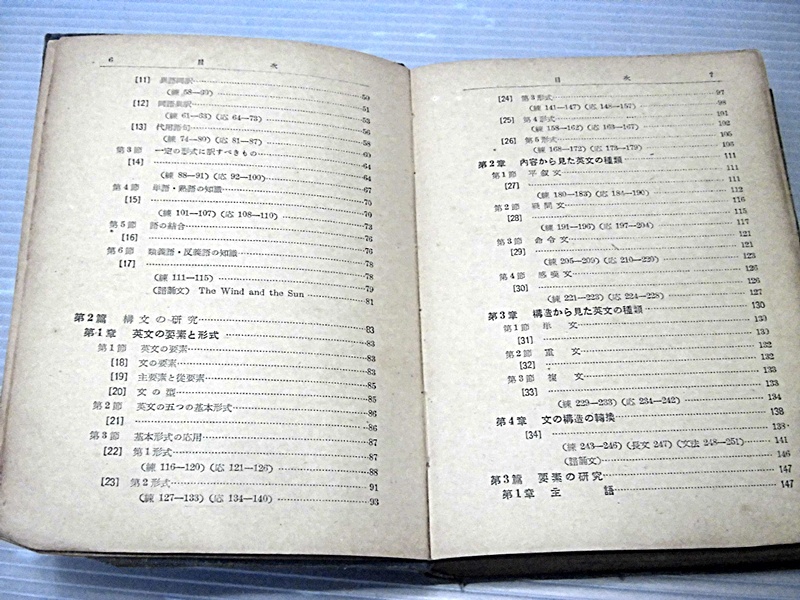 6 目次
[11] 異語同訳 50
(練 58—60) 51
[12] 同語異訳 53
(練 61—63) (応 64—73) 56
[13] 代用語句 58
(練 74—80) (応 81—87) 60
第3節 一定の形式に訳すべきもの 64
[14] 64
(練 88—91) (応 92—100) 67
第4節 単語・熟語の知識 70
[15] 70
(練 101—107) (応 108—110) 73
第5節 語の結合 76
[16] 76
第6節 類義語・反義語の知識 78
[17] 78
(練 111—115) 79
(諳誦文) The Wind and the Sun 81
第2篇 構文の研究 83
第1章 英文の要素と形式 83
第1節 英文の要素 83
[18] 文の要素 83
[19] 主要素と従要素 85
[20] 文の型 85
第2節 英文の五つの基本形式 86
[21] 86
第3節 基本形式の応用 87
[22] 第1形式 87
(練 116—120) (応 121—126) 88
[23] 第2形式 91
(練 127—133) (応 134—140) 93
目次 7
[24] 第3形式 97
(練 141—147) (応 148—157) 98
[25] 第4形式
(練 158—162) (応 163—167)
[26] 第5形式
(練 168—172) (応 173—179)
第2章 内容から見た英文の種類 111
第1節 平叙文 111
[27] 111
(練 180—183) (応 184—190) 112
第2節 疑問文 116
[28] 115
(練 191—196) (応 197—204) 117
第3節 命令文 121
[29] 121
(練 205—209) (応 210—220) 123
第4節 感嘆文 126
[30] 126
(練 221—223) (応 224—228) 127
第3章 構造から見た英文の種類 130
第1節 単文 130
[31] 130
第2節 重文 132
[32] 132
第3節 複文 133
[33] 133
(練 229—233) (応 234—242) 134
第4章 文の構造の転換 138
[34] 138
(練 243—246) (長文 247) (文法 248—251) 141
(諳誦文) 146
第3篇 要素の研究 147
第1章 主語 147